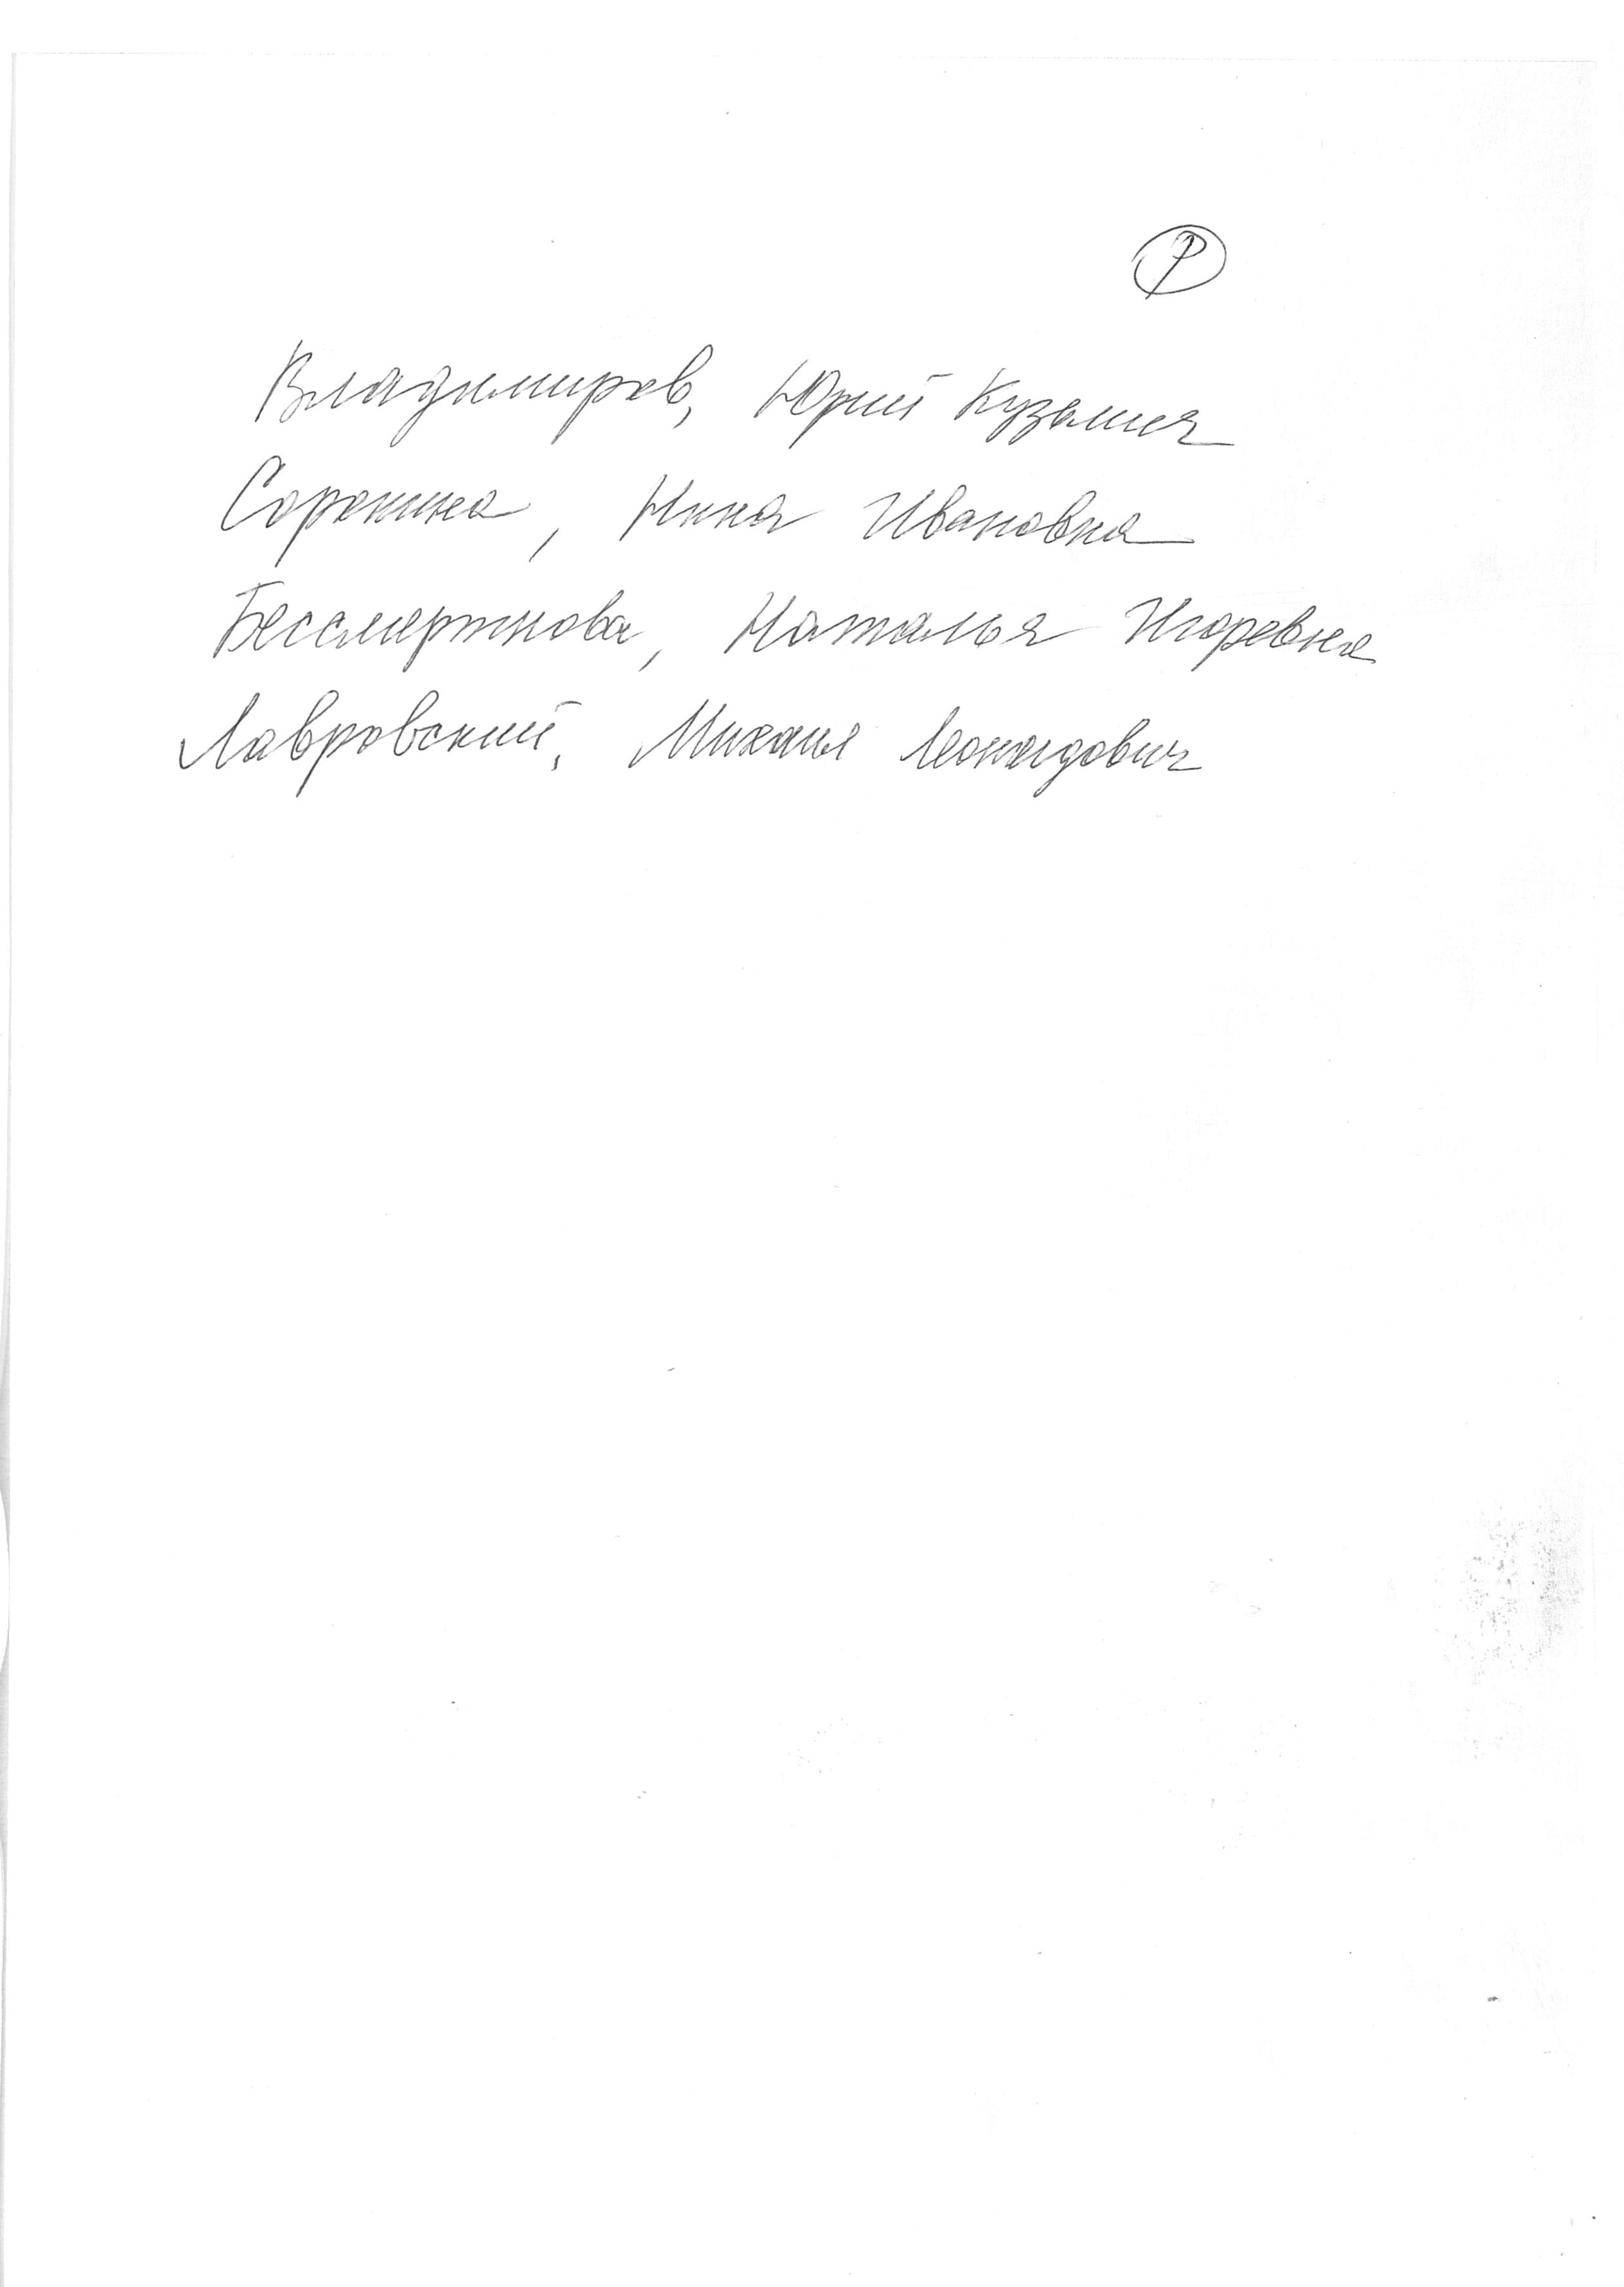 Владимиров, Юрий Кузьмич
Сорокина, Нина Ивановна
Бессмертнова, Наталья Игоревна
Лавровский, Михаил Леонидович